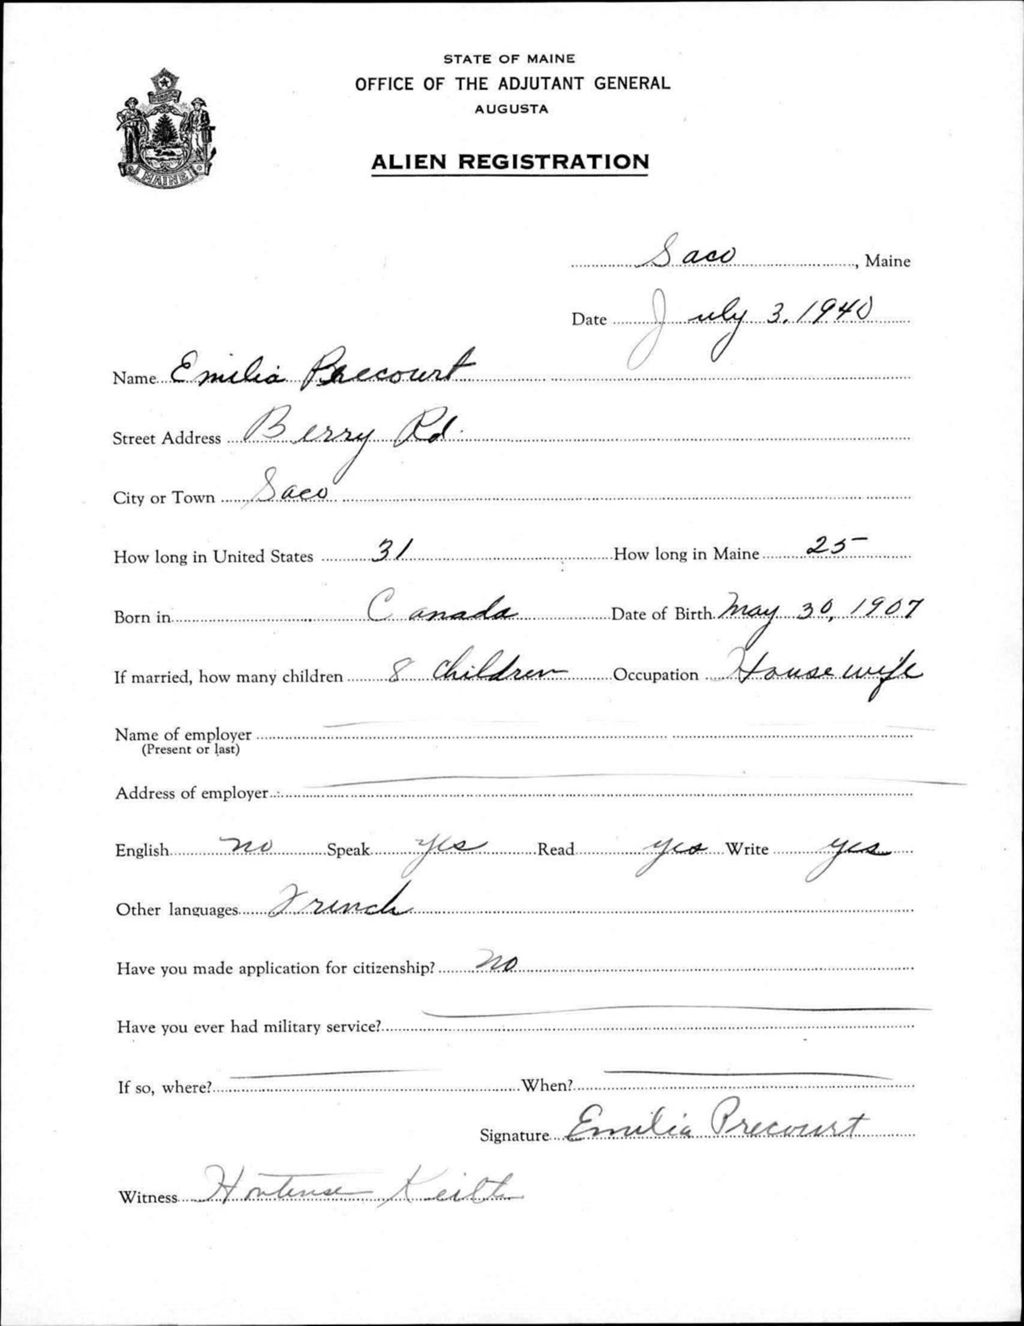 STATE OF MAINE
OFFICE OF THE ADJUTANT GENERAL
AUGUSTA
ALIEN REGISTRATION
MAINE
Saco, Maine
Date July 3, 1940
Name Emilia Precourt
Street Address Berry Rd.
City or Town Saco
How long in United States 31 How long in Maine 25
Born in Canada Date of Birth May 30, 1907
If married, how many children 8 children Occupation Housewife
Name of employer
(Present or last)
Address of employer
English no Speak yes Read yes Write yes
Other languages French
Have you made application for citizenship? no
Have you ever had military service?
If so, where? When?
Signature Emilia Precourt
Witness Hortense Keith